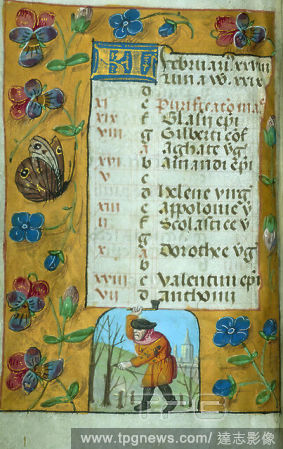 KL Februari xxviii
luna a w. xxix
d
xi e Purificatio ma
xix f Blasii epi
viii g Gilberti cōf
a aghate vg
xvi b amandi epi
v c
d Helene virg
xiii e Appolonie v
ii f Scolastice v
g
x a Dorothee vg
b
xviii c Valentini epi
vii d anthonii
TPG
www.tpgnews.com/ 達志影像